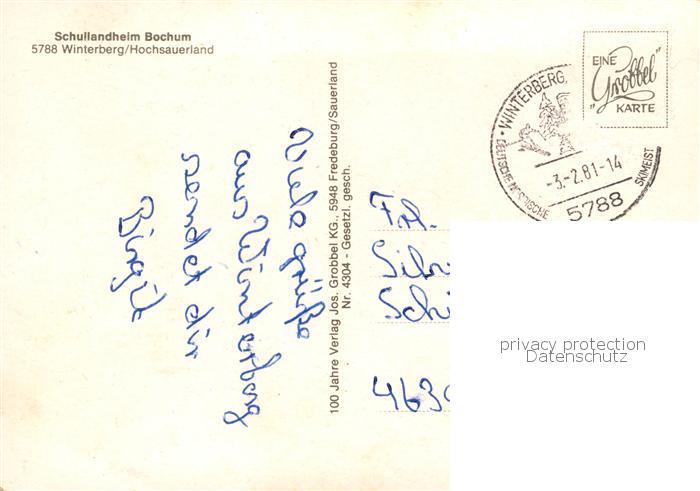 Schullandheim Bochum
5788 Winterberg/Hochsauerland
EINE
"Grobbel"
KARTE
WINTERBERG,
-3.-2.81-14
DEUTSCHE NORDISCHE SKIMEIST
5788
100 Jahre Verlag Jos. Grobbel KG., 5948 Fredeburg/Sauerland
Nr. 4304 - Gesetzl. gesch.
Viele grüße
aus Winterberg
sendet dir
Birgit
Frl.
Silv
Schi
4630
privacy protection
Datenschutz